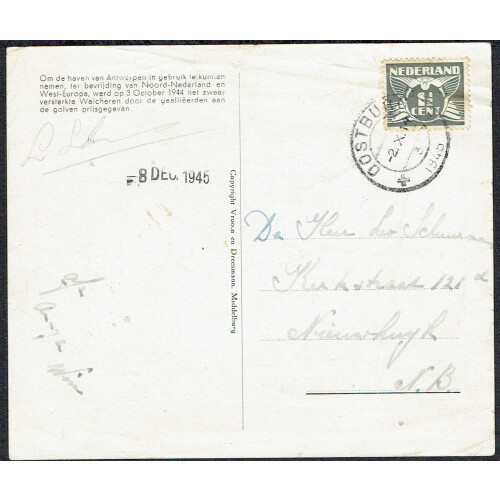 Om de haven van Antwerpen in gebruik te kunnen
nemen, ter bevrijding van Noord-Nederland en
West-Europa, werd op 3 October 1944 het zwaar
versterkte Walcheren door de geallieerden aan
de golven prijsgegeven.
-8 DEC. 1945
Copyright Vroom en Dreesmann, Middelburg
NEDERLAND
CENT
OOSTBU
1945
De Heer
Kerkstraat 121 d
Nieuwkuyk
N.B.